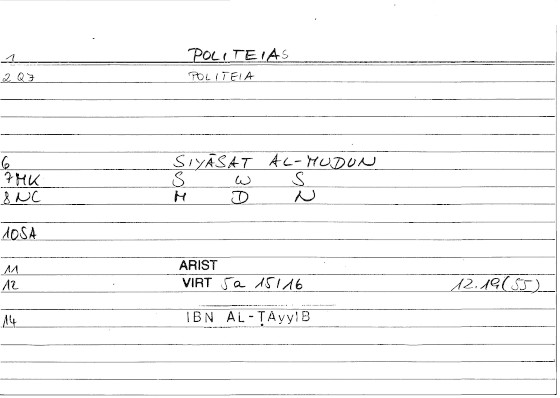 1 POLITEIAS
2 Q7 POLITEIA
6 SIYĀSAT AL-MUDUN
7MK S W S
8NC M D N
10SA
11 ARIST
12 VIRT 5a 15/16 12.19(55)
14 IBN AL-ṬAyyIB